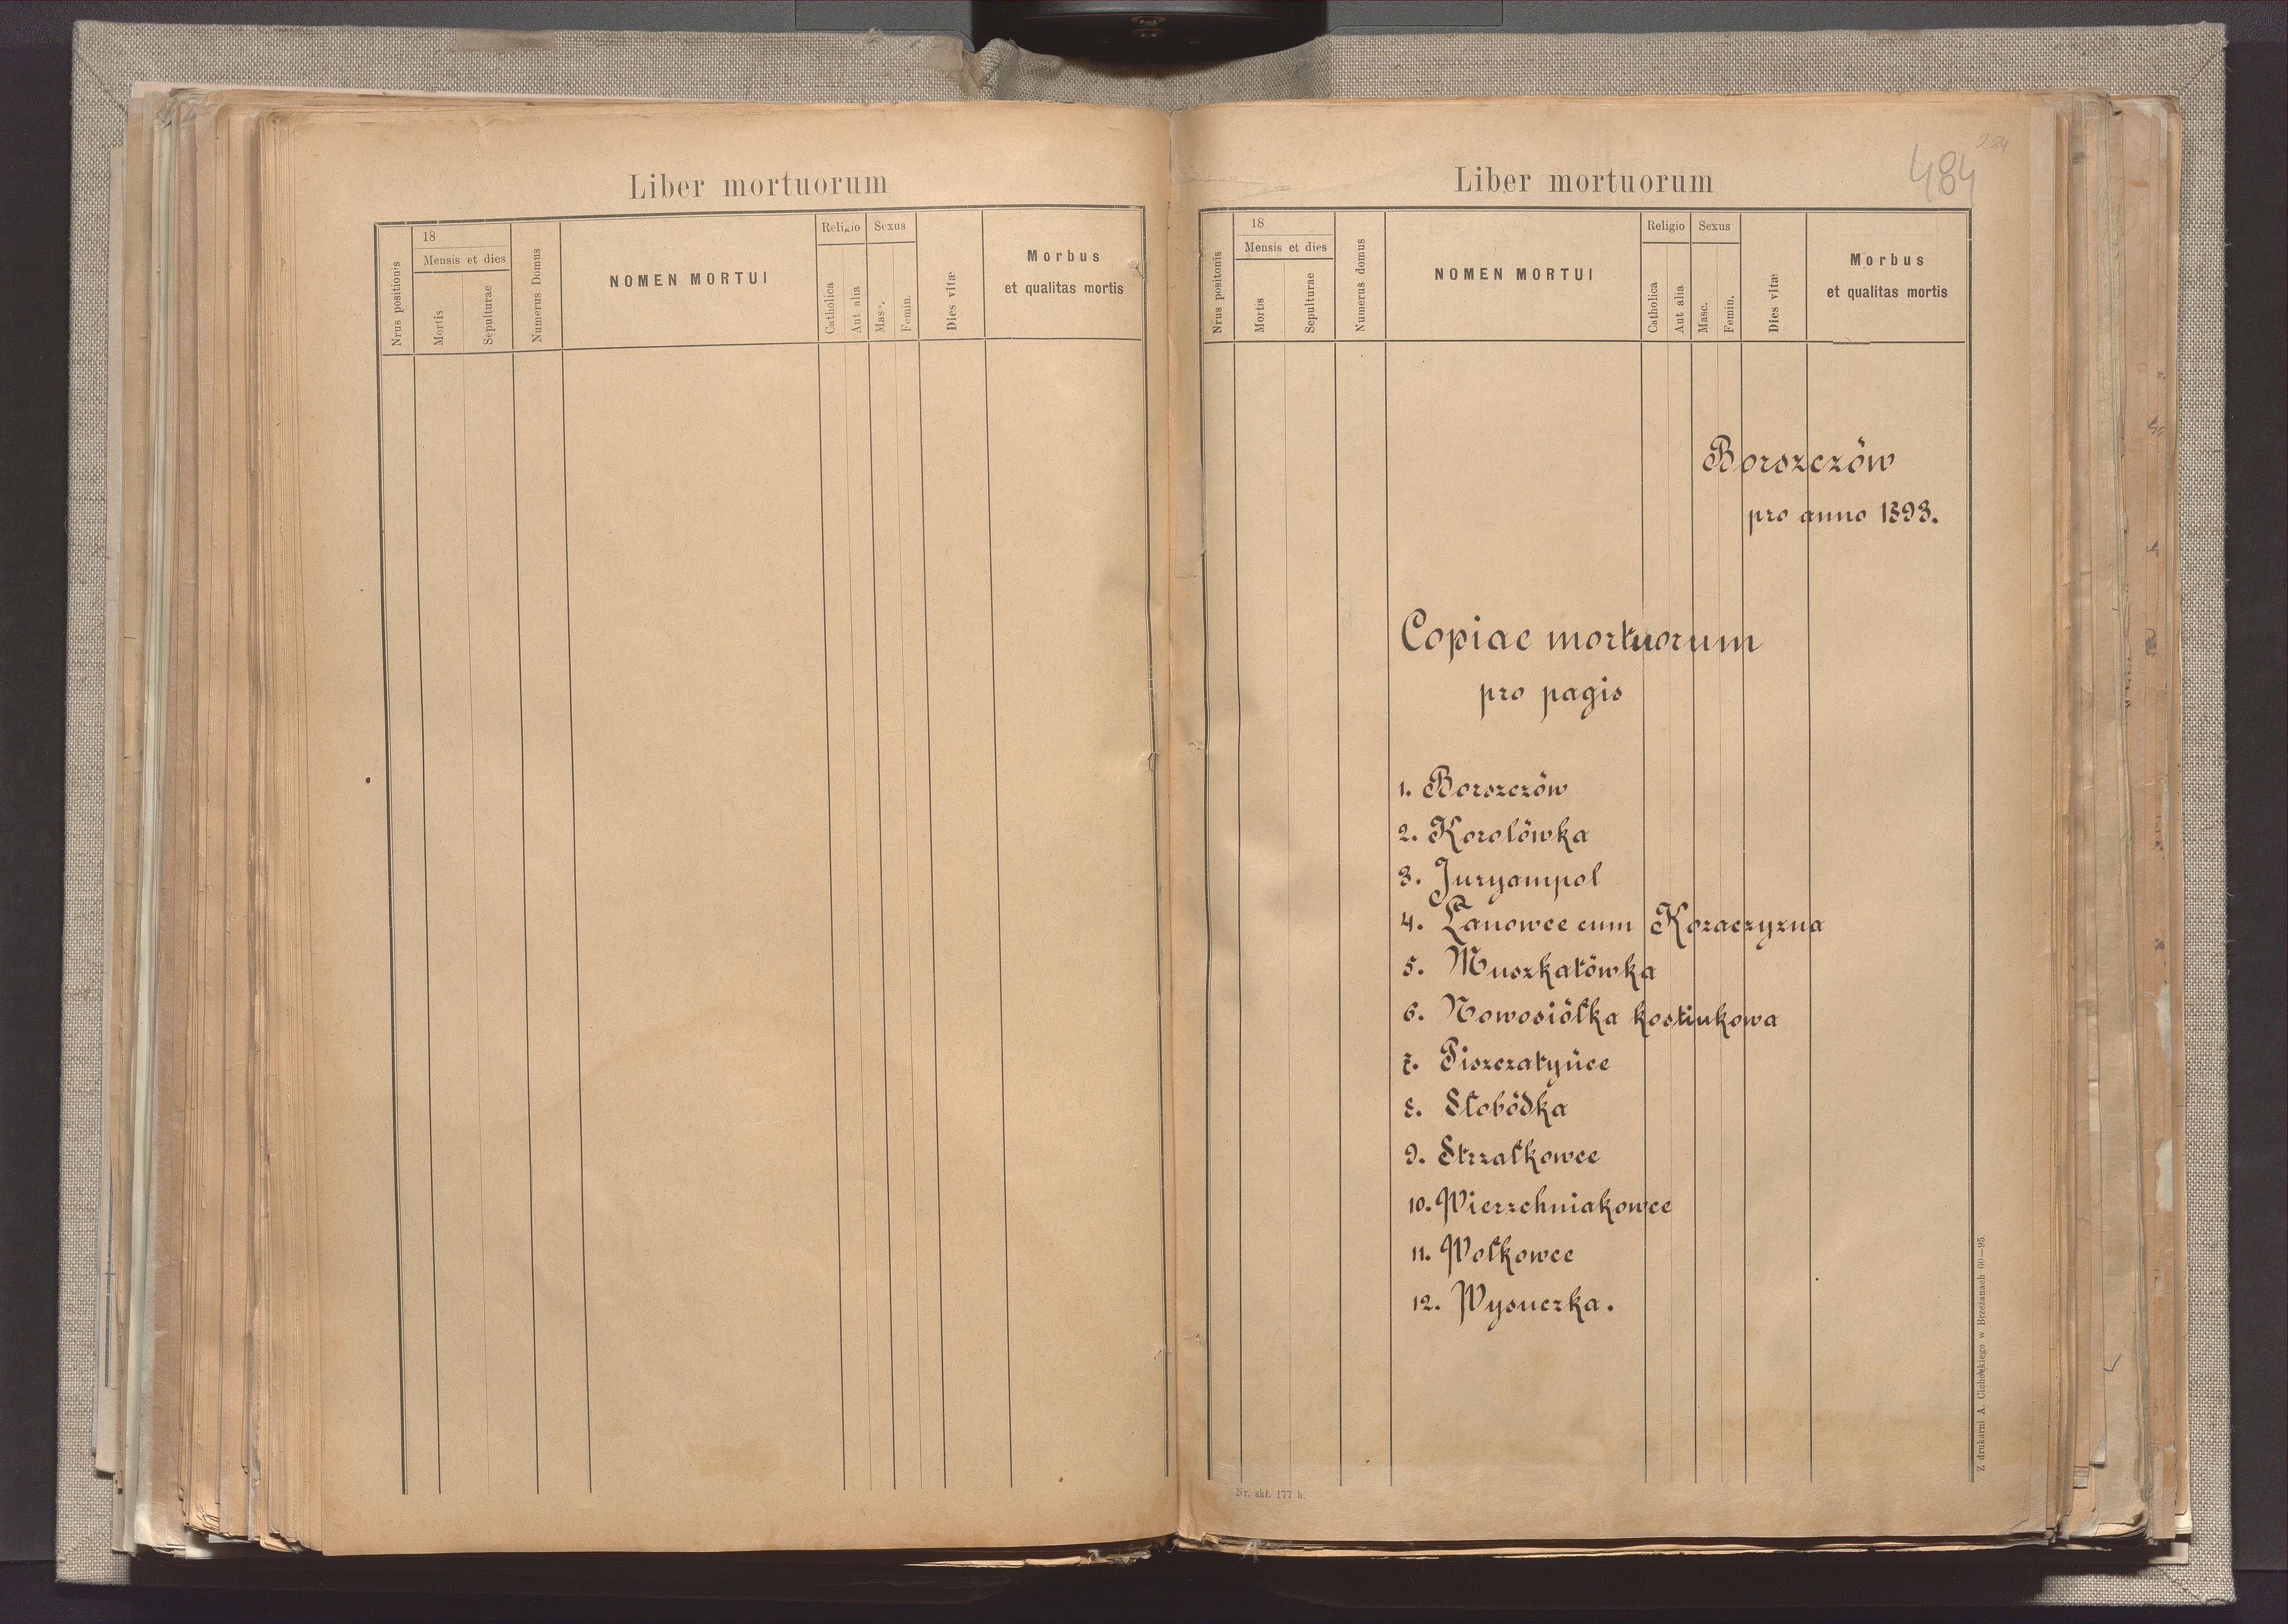 Liber mortuorum
Nrus positionis
18
Mensis et dies
Mortis
Sepulturae
Numerus Domus
NOMEN MORTUI
Religio
Catholica
Aut alia
Sexus
Masc.
Femin.
Dies vitæ
Morbus
et qualitas mortis
284
484
Liber mortuorum
Nrus positonis
18
Mensis et dies
Mortis
Sepulturae
Numerus domus
NOMEN MORTUI
Religio
Catholica
Aut alia
Sexus
Masc.
Femin.
Dies vitæ
Morbus
et qualitas mortis
Borszczów
pro anno 1893.
Copiae mortuorum
pro pagis
1. Borszczów
2. Korolówka
3. Juryampol
4. Łanowce cum Kozaczyzna
5. Muszkatówka
6. Nowosiółka kostiukowa
7. Piszczatyńce
8. Słobódka
9. Strzałkowce
10. Wierzchniakowce
11. Wołkowce
12. Wysuczka.
Nr. skł. 177 b.
Z drukarni A. w Brzeżanach 60—95.